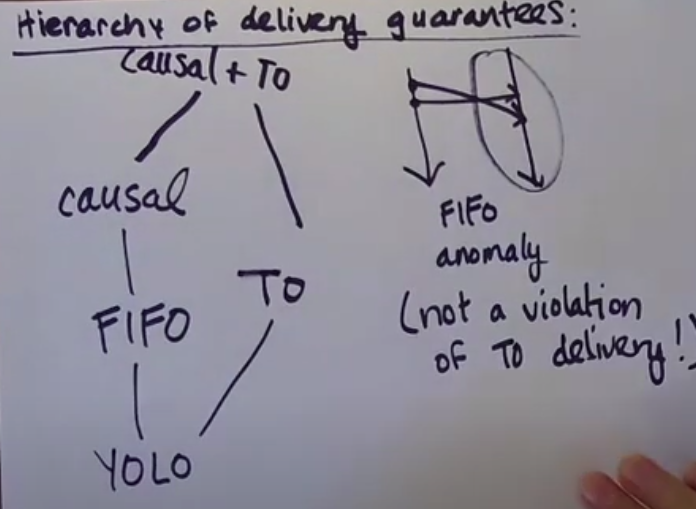 Hierarchy of delivery guarantees:
causal + TO
causal
FIFO
TO
YOLO
FIFO
anomaly
(not a violation
of TO delivery!)